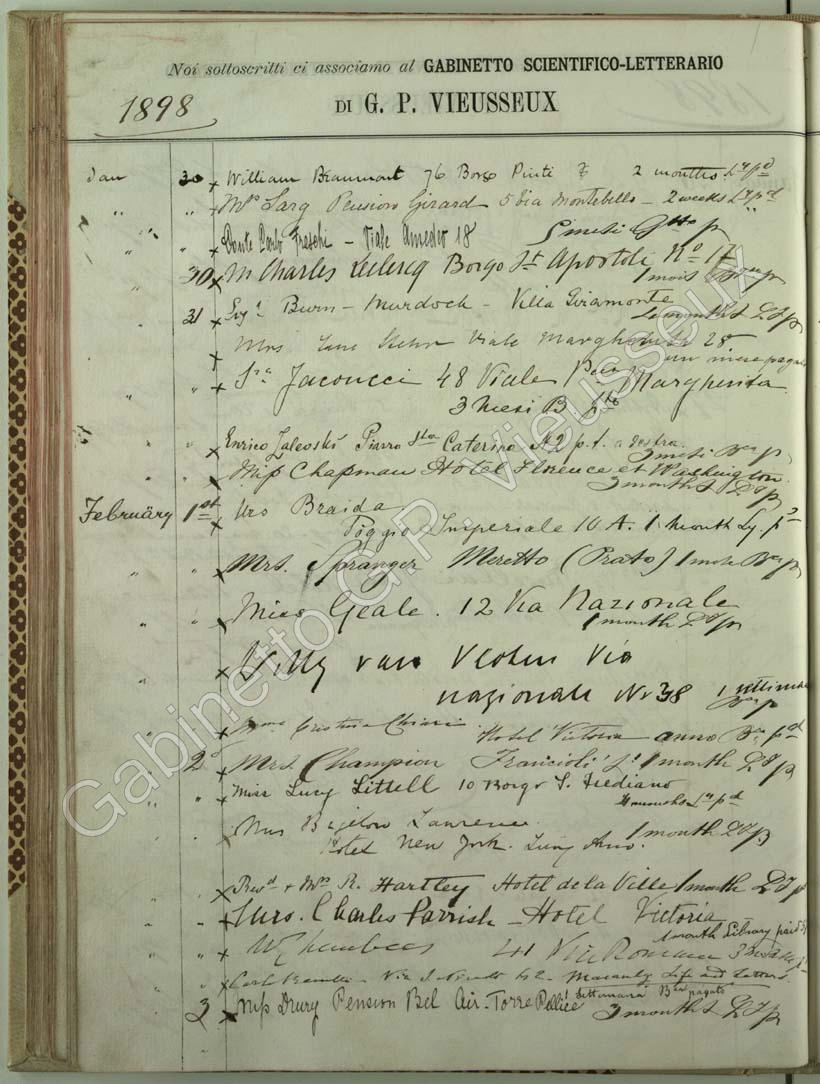 Noi sottoscritti ci associamo al GABINETTO SCIENTIFICO-LETTERARIO
1898 DI G. P. VIEUSSEUX
Jan 30 x William Beaumont 76 Borgo Pinti 2 months Ly pd
" " x Mrs Sarg Pension Girard 5 Via Montebello - 2 weeks Ly pd
" Conte Carlo Freschi - Viale Amedeo 18
5 mesi p
30 x M Charles Leclercq Borgo St Apostoli No 17
1 mois p
31 x Burn-Murdoch - Villa Giramonte
months L T p
x Mrs Viale Margherita 28
un mese pagato
" x Sra Jacoucci 48 Viale Pssa Margherita
3 Mesi B.
" x Enrico Zaleoski Piazza Sta Caterina No 2 p. t. a destra.
3 mesi p
" x Miss Chapman Hotel Florence et Washington
3 months L T p
February 1st x Braida
Poggio Imperiale 10 A. 1 Month Ly. pd
" x Mrs. Spranger Meretto (Prato) 1 p
" x Miss Geale. 12 Via Nazionale
1 month L T p
" x Willy van Vloten Via
nazionale Nr 38 1 settimana
p
" x Cristina Chiari
Hotel Victoria anno pd
2d x Mrs. Champion Francioli's! 1 month L T p
" x Miss Lucy Littell 10 Borgo S. Frediano
months Ly pd
" x Mrs Bigelow Lawrence 1 month L T p
Hotel New York. Lung Arno.
" x Revd + Mrs R. Hartley Hotel de la Ville 1 month L T p
" x Mrs. Charles Parrish - Hotel Victoria
1 month Library paid
" x W Chambers 41 Via Romana 3
" x Carlo Via Macaulay Life and Letters.
1 settimana pagato
3 x Miss Drury Pension Bel Air - Torre Pellice
3 months L T p
Gabinetto G.P. Vieusseux